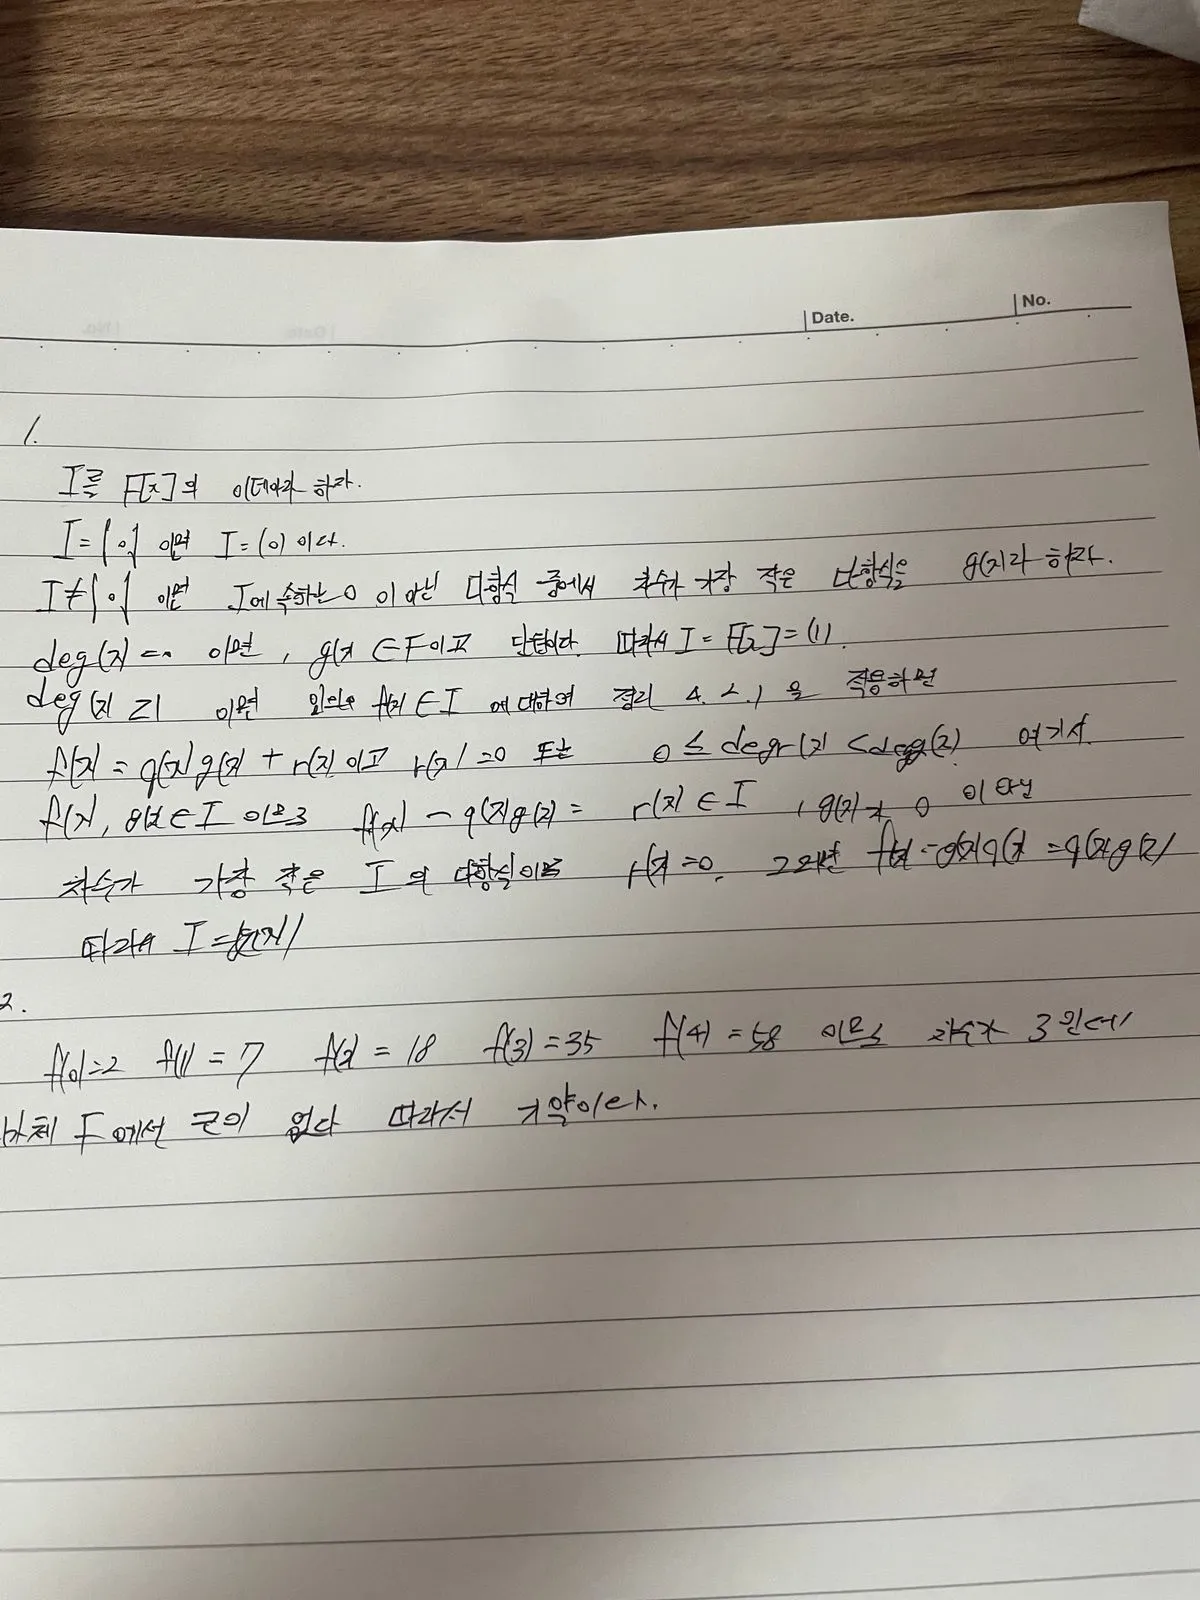 Date. No.
1.
I를 F[x]의 이데아라 하자.
I={0} 이면 I=(0) 이다.
I≠{0} 이면 I에 속하는 0이 아닌 다항식 중에서 차수가 가장 작은 다항식을 g(x)라 하자.
deg(x)=0 이면, g(x)∈F이고 단원이다. 따라서 I=F[x]=(1).
deg(x)≥1 이면 임의의 f(x)∈I 에 대하여 정리 4.2.1을 적용하면
f(x)=q(x)g(x)+r(x)이고 r(x)=0 또는 0≤degr(x)<degg(x). 여기서
f(x), g(x)∈I 이므로 f(x)-q(x)g(x)= r(x)∈I, g(x)가 0 이 아닌
차수가 가장 작은 I의 다항식이므로 r(x)=0. 그러면 =q(x)g(x)
따라서
2.
f(0)=2 f(1)=7 f(2)=18 f(3)=35 f(4)=58 이므로 차수가 3인데
체 F에서 근이 없다 따라서 기약이다.